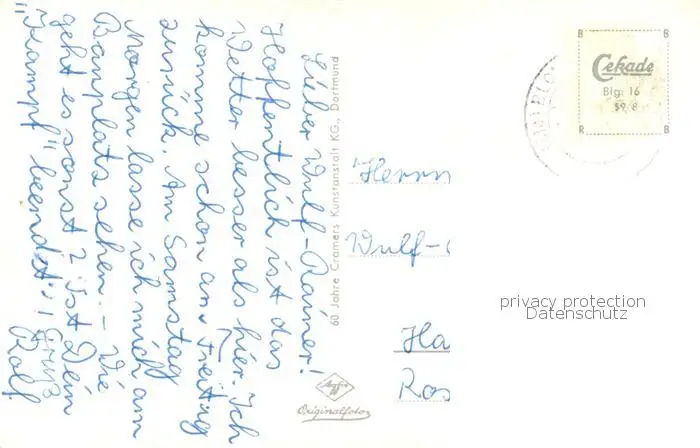 Lieber Wulf-Rainer!
Hoffentlich ist das
Wetter besser als hier. Ich
komme schon am Freitag
zurück. Am Samstag
Morgen lasse ich mich am
Banplatz sehen. - Wie
geht es sonst? Ist Dein
"Kampf" beendet? !
Gruß
Rolf
60 Jahre Cramers Kunstanstalt KG., Dortmund
Herrn
Wulf-
Ha
Ros
Agfa
Originalfoto
B B
Cekade
Blg: 16
59 8
R B
privacy protection
Datenschutz